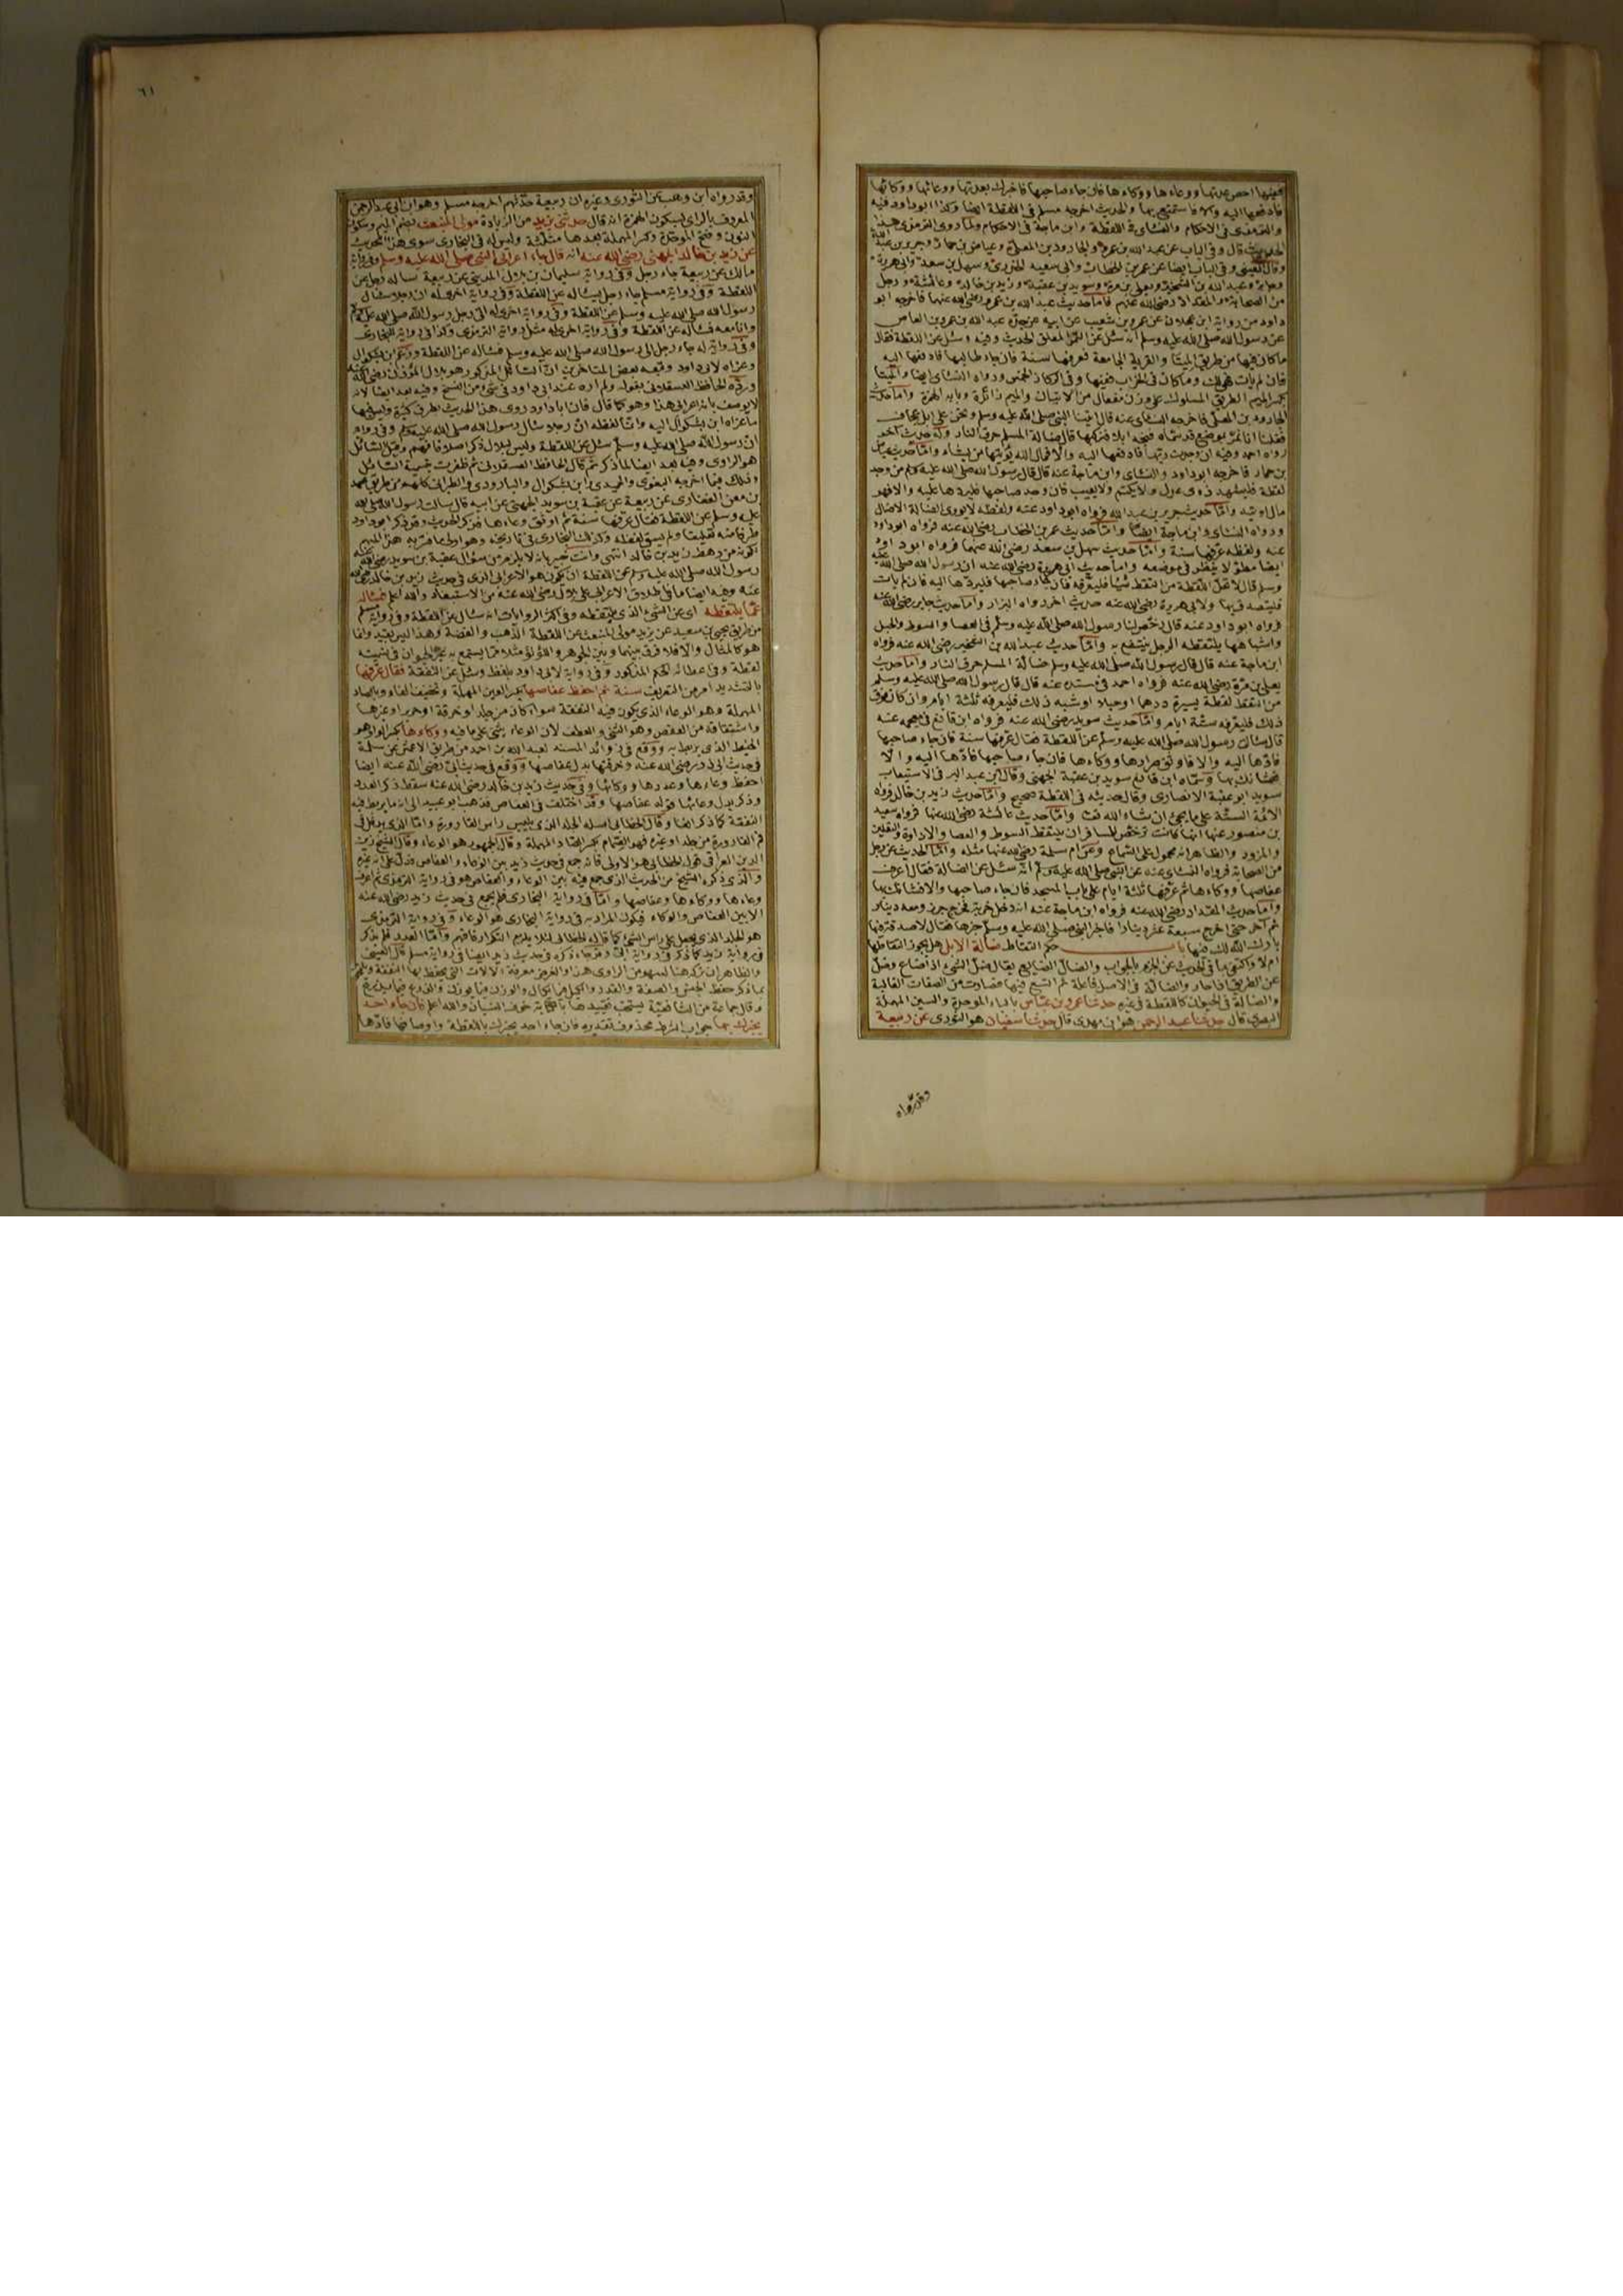 فادفعها اليه والا فاستمتع بها والحديث اخرجه مسلم في اللقطة ايضا وكذا ابو داود فيه
والترمذي في الاحكام والنسائي في اللقطة وابن ماجة في الاحكام ولما روى الترمذي هذا
الحديث قال وفي الباب عن عبد الله بن عمرو والجارود بن المعلى وعياض بن حمار وجرير بن عبد الله
من الصحابة والمقداد رضي الله عنهم فاما حديث عبد الله بن عمرو رضي الله عنهما فاخرجه ابو
داود من رواية ابن عجلان عن عمرو بن شعيب عن ابيه عن جده عبد الله بن عمرو بن العاص
عن رسول الله صلى الله عليه وسلم انه سئل عن الثمر المعلق الحديث وفيه وسئل عن اللقطة فقال
ما كان فيها من طريق الميتاء والقرية الجامعة فعرفها سنة فان جاء طالبها فادفعها اليه
فان لم يأت فهي لك وما كان في الخراب ففيها وفي الركاز الخمس ورواه النسائي ايضا والميتا
بكسر الميم الطريق المسلوك على وزن مفعال من الاتيان والميم زائدة وبابه الهمزة واما حديث
الجارود بن المعلى فاخرجه النسائي عنه قال اتينا النبي صلى الله عليه وسلم ونحن على ابل عجاف
بن حمار فاخرجه ابو داود والنسائي وابن ماجة عنه قال قال رسول الله صلى الله عليه وسلم من وجد
لقطة فليشهد ذوي عدل ولا يكتم ولا يغيب فان وجد صاحبها فليردها عليه والا فهو
مال الله يؤتيه واما حديث جرير بن عبد الله فرواه ابو داود عنه ولفظه لا يؤوي الضالة الا ضال
ورواه النسائي وابن ماجة ايضا واما حديث عمر بن الخطاب رضي الله عنه فرواه ابو داود
عنه ولفظه عرفها سنة واما حديث سهل بن سعد رضي الله عنهما فرواه ابو داود
فرواه ابو داود عنه قال رخص لنا رسول الله صلى الله عليه وسلم في العصا والسوط والحبل
واشباهها يلتقطه الرجل ينتفع به واما حديث عبد الله بن الشخير رضي الله عنه فرواه
ابن ماجة عنه قال قال رسول الله صلى الله عليه وسلم ضالة المسلم حرق النار واما حديث
يعلى بن مرة رضي الله عنه فرواه احمد في مسنده عنه قال قال رسول الله صلى الله عليه وسلم
من التقط لقطة يسيرة درهما او حبلا او شبه ذلك فليعرفه ثلثة ايام وان كان فوق
ذلك فليعرفه ستة ايام واما حديث سويد رضي الله عنه فرواه ابن قانع في معجمه عنه
قال سألت رسول الله صلى الله عليه وسلم عن اللقطة فقال عرفها سنة فان جاء صاحبها
فادها اليه والا فاوثق صرارها ووكاءها فان جاء صاحبها فادها اليه والا
فشانك بها وسماه ابن قانع سويد بن عقبة الجهني وقال ابن عبد البر في الاستيعاب
سويد ابو عقبة الانصاري وقال حديثه في اللقطة صحيح واما حديث زيد بن خالد فرواه
الائمة الستة على ما يجيء ان شاء الله تعالى واما حديث عائشة رضي الله عنها فرواه سعيد
بن منصور عنها انها كانت ترخص للمسافر ان يلتقط السوط والعصا والاداوة والنعلين
والمزود والظاهر انه محمول على السماع وعن ام سلمة رضي الله عنها مثله واما الحديث عن رجل
من الصحابة فرواه النسائي عنه عن النبي صلى الله عليه وسلم انه سئل عن الضالة فقال اعرف
عفاصها ووكاءها ثم عرفها ثلثة ايام على باب المسجد فان جاء صاحبها والا فشانك بها
واما حديث المقداد رضي الله عنه فرواه ابن ماجة عنه انه دخل خربة فخرج جرذ ومعه دينار
ثم آخر حتى اخرج سبعة عشر دينارا فاخبر النبي صلى الله عليه وسلم خبرها فقال لا صدقة فيها
بارك الله لك فيها باب حكم التقاط ضالة الابل هل يجوز التقاطها
ام لا واكتفى بما في الحديث عن الجزم بالجواب والضال الضائع يقال ضل الشيء اذا ضاع وضل
عن الطريق اذا حار والضالة في الاصل فاعلة ثم اتسع فيها فصارت من الصفات الغالبة
والضالة في الحيوان كاللقطة في غيره حدثنا عمرو بن عباس بالباء الموحدة والسين المهملة
البصري قال حدثنا عبد الرحمن هو ابن مهدي قال حدثنا سفيان هو الثوري عن ربيعة
وقد رواه
٦١
وقد رواه ابن وهب عن الثوري وغيره ان ربيعة حدثهم اخرجه مسلم وهو ابن ابي عبد الرحمن
المعروف بالراي بسكون الهمزة انه قال حدثني يزيد من الزيادة مولى المنبعث بضم الميم وسكون
النون وفتح الموحدة وكسر المهملة بعدها مثلثة وليس له في البخاري سوى هذا الحديث
عن زيد بن خالد الجهني رضي الله عنه انه قال جاء اعرابي النبي صلى الله عليه وسلم وفي رواية
مالك عن ربيعة جاء رجل وفي رواية سليمان بن بلال المدني عن ربيعة ساله رجل عن
اللقطة وفي رواية مسلم جاء رجل يسئاله عن اللقطة وفي رواية اخرى له ان رجلا سئال
رسول الله صلى الله عليه وسلم عن اللقطة وفي رواية اخرى له اتى رجل رسول الله صلى الله عليه وسلم
وانا معه فسئاله عن اللقطة وفي رواية اخرى له مثل رواية الترمذي وكذا في رواية للبخاري
وفي رواية له جاء رجل الى رسول الله صلى الله عليه وسلم فسئاله عن اللقطة وزعم ابن بشكوال
وعزاه لابي داود وتبعه بعض المتاخرين ان السائل المذكور هو بلال المؤذن رضي الله عنه
ورده الحافظ العسقلاني بقوله ولم اره عند ابي داود في شيء من النسخ وفيه بعد ايضا لانه
لا يوصف بانه اعرابي هذا وهو كما قال فان ابا داود روى هذا الحديث بطرق كثيرة وليس فيها
ما عزاه ابن بشكوال اليه وانما لفظه ان رجلا سئال رسول الله صلى الله عليه وسلم وفي رواية
ان رسول الله صلى الله عليه وسلم سئل عن اللقطة وليس لبلال ذكر اصلا فافهم وقيل السائل
هو الراوي وفيه بعد ايضا لما ذكر ثم قال الحافظ العسقلاني ثم ظفرت بتسمية السائل
وذلك فيما اخرجه البغوي والحميدي وابن السكن والباوردي والطبراني كلهم من طريق محمد
بن معن الغفاري عن ربيعة عن عقبة بن سويد الجهني عن ابيه قال سالت رسول الله صلى الله
عليه وسلم عن اللقطة فقال عرفها سنة ثم اوثق وعاءها فذكر الحديث وقد ذكر ابو داود
طرفا منه تعليقا ولم يسق لفظه وكذلك البخاري في تاريخه وهو اولى ما فسر به هذا المبهم
لكونه من رهط زيد بن خالد انتهى وانت خبير بانه لا يلزم من سؤال عقبة بن سويد رضي الله عنه
رسول الله صلى الله عليه وسلم عن اللقطة ان يكون هو الاعرابي الذي في حديث زيد بن خالد رضي الله
عما يلتقطه اي عن الشيء الذي يلتقطه وفي اكثر الروايات انه سئال عن اللقطة وفي رواية مسلم
من طريق يحيى بن سعيد عن يزيد مولى المنبعث عن اللقطة الذهب والفضة وهذا ليس بقيد وانما
هو كالمثال والا فلا فرق بينهما وبين الجوهر واللؤلؤ مثلا مما يستمتع به غير الحيوان في تسميته
لقطة وفي اعطائه الحكم المذكور وفي رواية لابي داود بلفظ وسئل عن النفقة فقال عرفها
بالتشديد امر من التعريف سنة ثم احفظ عفاصها بكسر العين المهملة وتخفيف الفاء وبالصاد
المهملة وهو الوعاء الذي يكون فيه النفقة سواء كان من جلد او خرقة او حرير او غيرها
واشتقاقه من العفص وهو الثني والعطف لان الوعاء يثنى على ما فيه ووكاءها بكسر الواو هو
الخيط الذي يربط به ووقع في زوائد المسند لعبد الله بن احمد من طريق الاعمش عن سلمة
في حديث ابي رضي الله عنه وخرقتها بدل عفاصها ووقع في حديث ابي رضي الله عنه ايضا
احفظ وعاءها وعددها ووكائها وفي حديث زيد بن خالد رضي الله عنه سقط ذكر العدد
وذكر بدل وعائها قوله عفاصها وقد اختلف في العفاص فذهب ابو عبيد الى انه ما يربط فيه
النفقة كما ذكر انفا وقال الخطابي اصله الجلد الذي يلبس راس القارورة واما الذي يدخل في
فم القارورة من جلد او غيره فهو الصمام بكسر الصاد المهملة وقال الجمهور هو الوعاء وقال الشيخ زين
الدين العراقي قول الخطابي هو الاولى فانه جمع في حديث زيد بين الوعاء والعفاص فدل على انه غيره
والذي ذكره الشيخ من الحديث الذي جمع فيه بين الوعاء والعفاص هو في رواية الترمذي ثم اعرف
وعاءها ووكاءها وعفاصها واما في رواية البخاري فلم يجمع في حديث زيد رضي الله عنه
الا بين العفاص والوكاء فيكون المراد به في رواية البخاري هو الوعاء وفي رواية الترمذي
هو الجلد الذي يجعل على راس الشيء كما قاله الخطابي لئلا يلزم التكرار فافهم واما العدد فلم يذكر
في رواية زيد كما ذكر في رواية ابي وقد جاء ذكره في حديث زيد ايضا في رواية مسلم قال العيني
والظاهر ان تركه هنا لسهو من الراوي هذا والغرض معرفة الالات التي يحفظ بها النفقة ويلحق
بما ذكر حفظ الجنس والصفة والقدر والكيل فيما يكال والوزن فيما يوزن والذرع فيما يذرع
وقال جماعة من الشافعية يستحب تقييدها بالكتابة خوف النسيان والله اعلم فان جاء احد
يخبرك بها جواب الشرط محذوف تقديره فان جاء احد يخبرك باللقطة واوصافها فادها